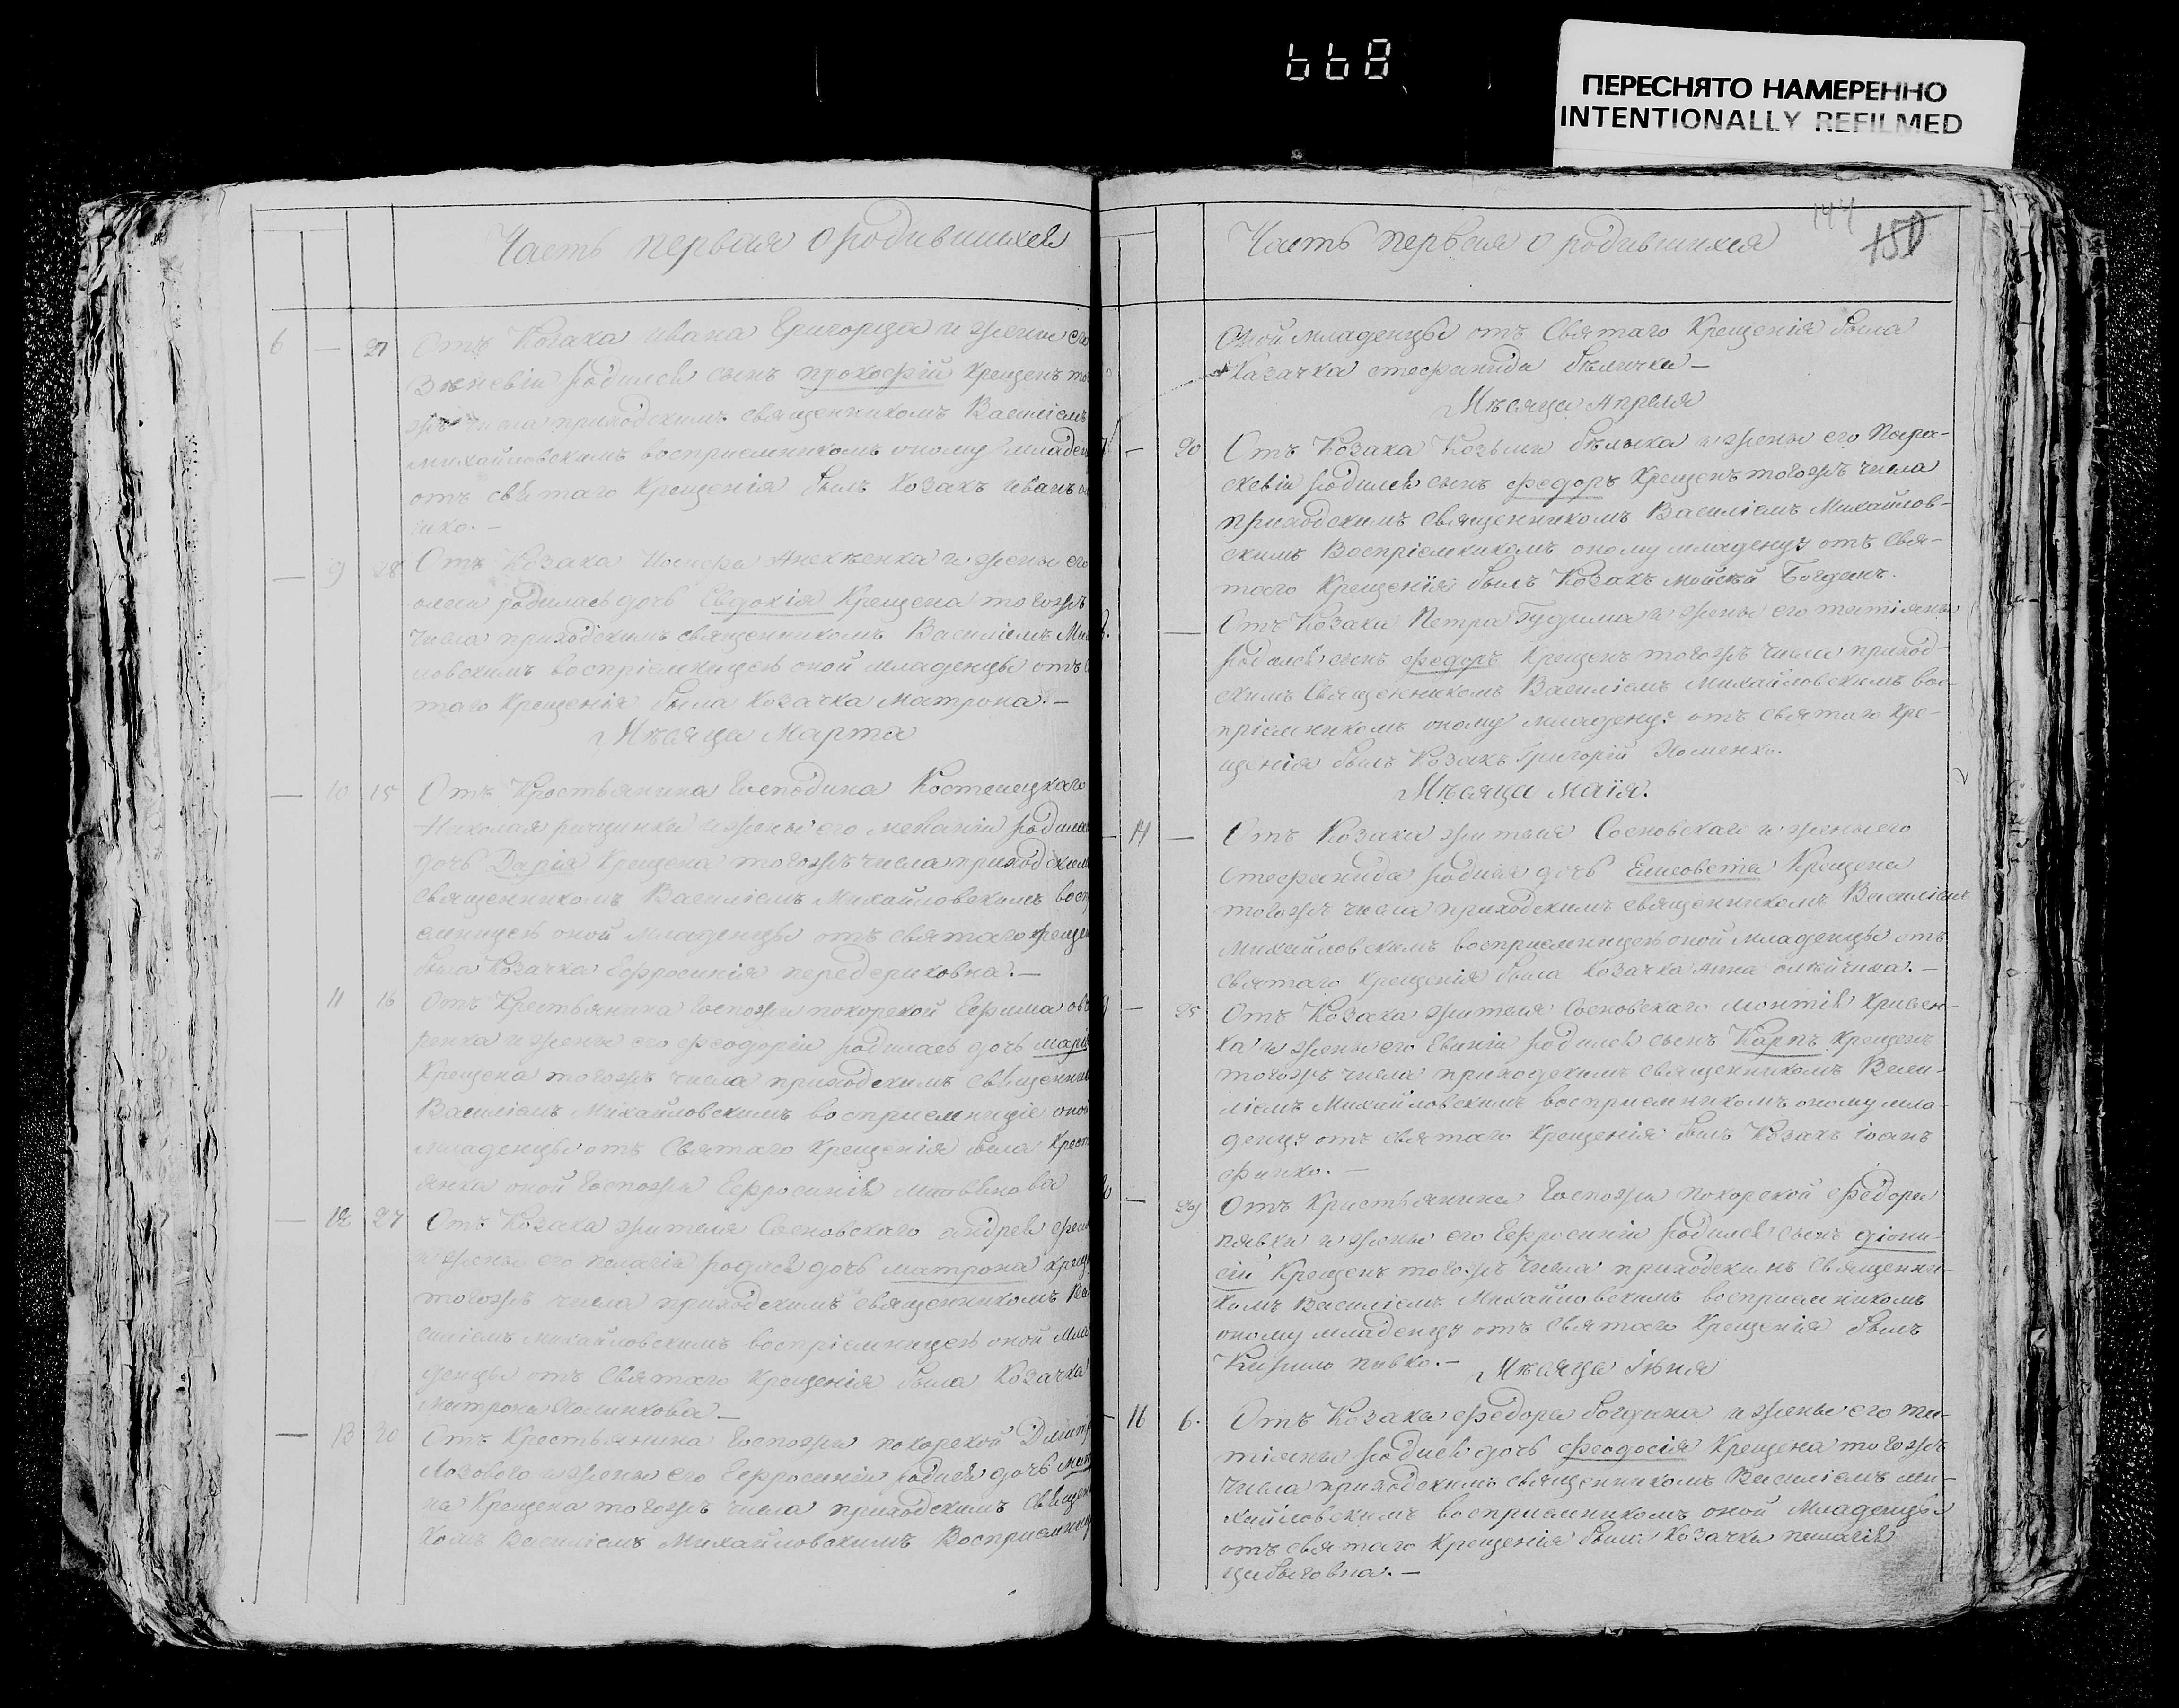 668
ПЕРЕСНЯТО НАМЕРЕННО
INTENTIONALLY REFILMED
Часть первая о родившихся
6 — 27 Отъ Козака Ивана Григорца и жены его
родился сынъ прокофій Крещенъ то
жъ числа приходскимъ священникомъ Василіемъ
михайловскимъ восприемникомъ оному младен
отъ святаго Крещенія былъ Козакъ иванъ
— 9 28 Отъ Козака и жены его
родилась дочь Евдокія Крещена тогожъ
числа приходскимъ священникомъ Василіемъ Ми
ловскимъ воспріемницею оной младенцы отъ
таго Крещенія была Козачка матрона. —
Мѣсяца Марта
— 10 15 Отъ Крестьянина Господина Костенецкаго
Николая и жены его меланіи родила
дочь Дарія Крещена тогожъ числа приходским
священникомъ Василіемъ Михайловскимъ восп
емницею оной младенцы отъ святаго креще
была Козачка Ефросинія передериховна. —
11 16 Отъ Крестьянина Госпожи покорской Ефима
ренка и жены его феодоріи родилась дочь марі
Крещена тогожъ числа приходскимъ священни
Василіемъ Михайловскимъ восприемниціе оной
младенцы отъ Святаго Крещенія была Крест
янка оной Госпожи Ефросинія
— 12 27 Отъ Козака жителя Сосновскаго андрея
и жены его пелагіи родися дочь матрона креще
тогожъ числа приходскимъ священникомъ Ва
силіемъ михайловскимъ воспріемницею оной мла
денцы отъ Святаго Крещенія была Козачка
Матрона —
— 13 30 Отъ Крестьянина Госпожи покорской Димит
Лозового и жены его Ефросиніи родися дочь
на Крещена тогожъ числа приходскимъ Священ
комъ Василіемъ Михайловскимъ Восприемниц
Часть первая о родившихся
144
150
Оной младенцы отъ Святаго Крещенія была
Казачка стефанида бѣличка —
Мѣсяца Апреля
— 20 Отъ Козака Козьмы бѣлыка и жены его Пара-
скевіи родился сынъ федоръ Крещенъ тогожъ числа
приходскимъ священникомъ Василіемъ Михайлов-
скимъ Воспріемникомъ оному младенцу отъ Свя-
таго Крещенія былъ Козакъ мойсѣй Богданъ.
— Отъ Козака Петра Гудима и жены его татіяны
родился сынъ федоръ Крещенъ тогожъ числа приход-
скимъ Священникомъ Василіемъ Михайловскимъ вос-
пріемникомъ оному младенцу отъ святаго Кре-
щенія былъ Козакъ Григорій Хоменко.
Мѣсяца Маія.
— 14 — Отъ Козака жителя Сосновскаго и жены его
стефанида родися дочь Елисовета Крещена
тогожъ числа приходскимъ священникомъ Василіемъ
михайловскимъ восприемницею оной младенцы отъ
святаго Крещенія была Козачка Анна олѣйчиха. —
— 25 Отъ Козака жителя Сосновскаго
ка и жены его родился сынъ Карпъ Крещенъ
тогожъ числа приходскимъ священникомъ Васи-
ліемъ Михайловскимъ восприемникомъ оному мла-
денцу отъ святаго Крещенія былъ Козакъ іоанъ
— 29 Отъ Кристьянина Госпожи Покорской федора
пявки и жены его Ефросиніи родился сынъ діони-
сій Крещенъ тогожъ числа приходскимъ Священни-
комъ Василіемъ Михайловскимъ восприемникомъ
оному младенцу отъ Святаго Крещенія былъ
Кирило —
Мѣсяца Іюня
— 16 6. Отъ Козака федора богдана и жены его та-
тіяны родися дочь феодосія Крещена тогожъ
числа приходскимъ священникомъ Василіемъ ми-
хайловскимъ восприемникомъ оной младенцы
отъ святаго Крещенія была Козачка пелагія